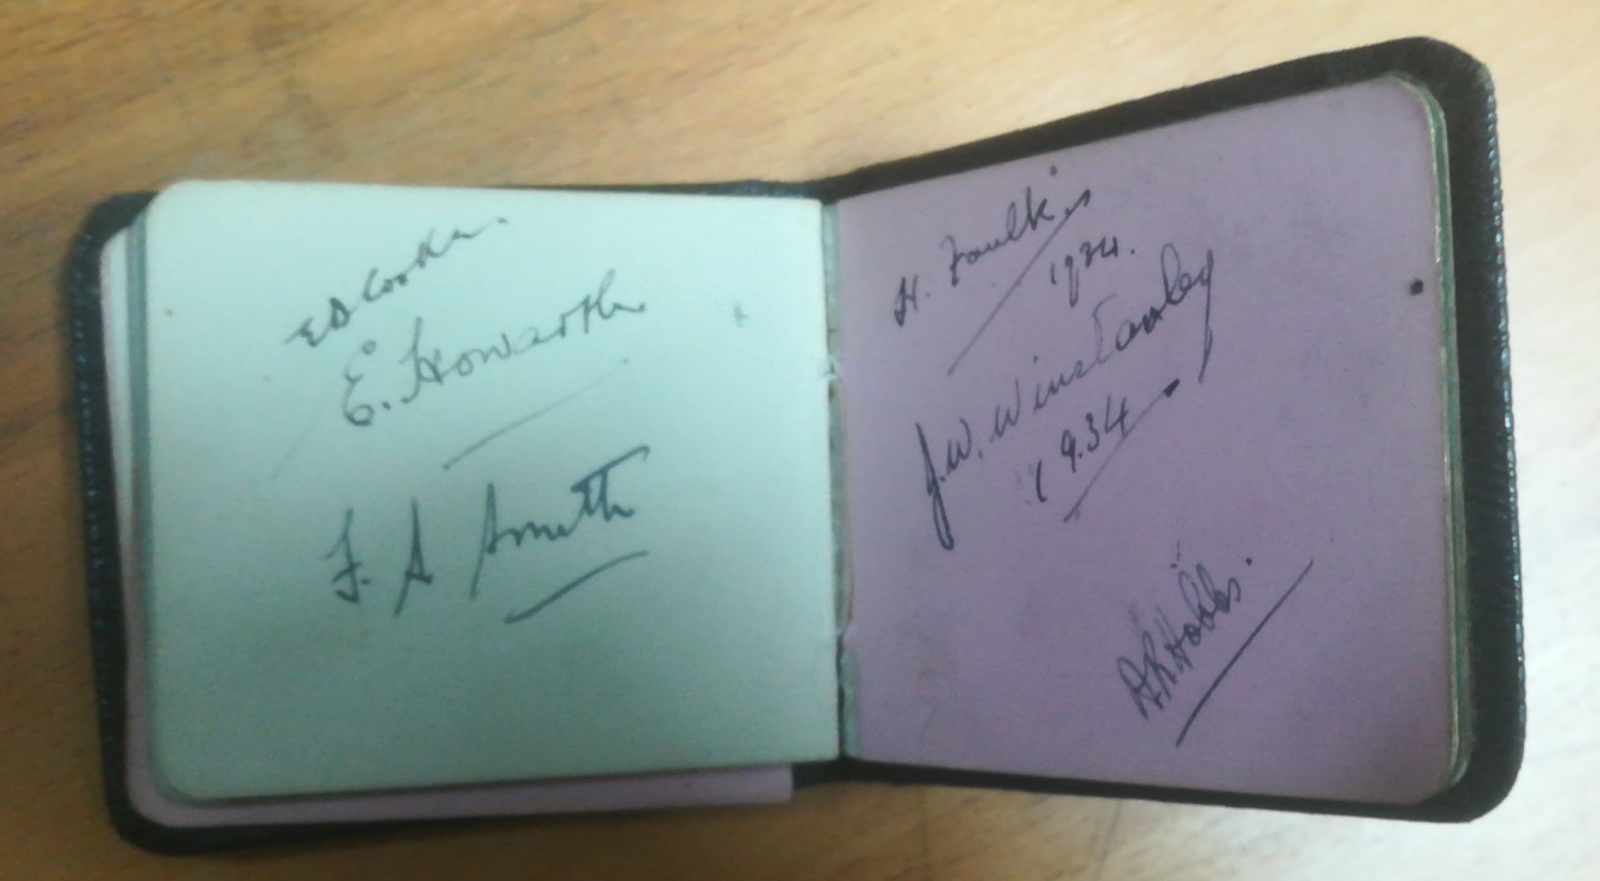 E. Howarth
F. A Smith
H. Faulkis
1934.
J. W. Winstanley
1934
A R Hobbs.